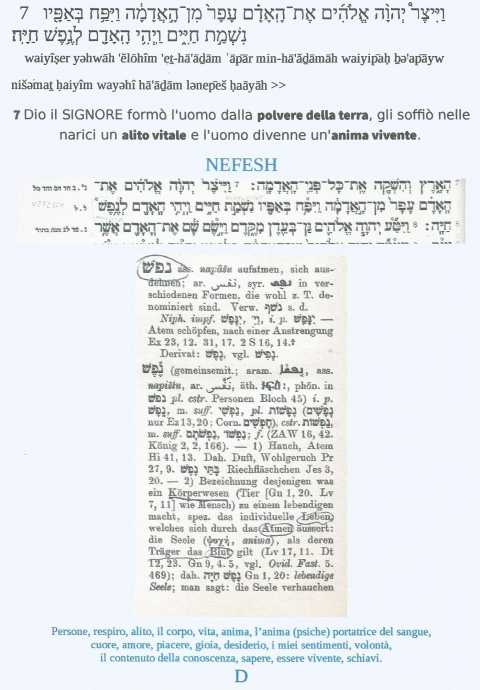 7 וַיִּיצֶר֩ יְהוָ֨ה אֱלֹהִ֜ים אֶת־הָֽאָדָ֗ם עָפָר֙ מִן־הָ֣אֲדָמָ֔ה וַיִּפַּ֥ח בְּאַפָּ֖יו
נִשְׁמַ֣ת חַיִּ֑ים וַֽיְהִ֥י הָֽאָדָ֖ם לְנֶ֥פֶשׁ חַיָּֽה׃
waiyîṣer yəhwāh 'ĕlōhîm 'eṯ-hā'āḏām 'āpār min-hā'ăḏāmāh waiyipaḥ bə'apāyw
nišəmaṯ ḥaiyîm wayəhî hā'āḏām lənepeš ḥaāyāh >>
7 Dio il SIGNORE formò l'uomo dalla polvere della terra, gli soffiò nelle
narici un alito vitale e l'uomo divenne un'anima vivente.
NEFESH
הָאָרֶץ וְהִשְׁקָה אֶת־כָּל־פְּנֵי־הָאֲדָמָה׃ 7 וַיִּיצֶר יְהוָה אֱלֹהִים אֶת־
הָאָדָם עָפָר מִן־הָאֲדָמָה וַיִּפַּח בְּאַפָּיו נִשְׁמַת חַיִּים וַיְהִי הָאָדָם לְנֶפֶשׁ
חַיָּה׃ 8 וַיִּטַּע יְהוָה אֱלֹהִים גַּן־בְּעֵדֶן מִקֶּדֶם וַיָּשֶׂם שָׁם אֶת־הָאָדָם אֲשֶׁר
נפש ass. napāšu aufatmen, sich aus-
dehnen; ar. syr. in ver-
schiedenen Formen, die wohl z. T. de-
nominiert sind. Verw. נשׁף s. d.
Niph. impf. i. p. יִנָּפֵשׁ —
Atem schöpfen, nach einer Anstrengung
Ex 23, 12. 31, 17. 2 S 16, 14.†
Derivat: נֶפֶשׁ, vgl.
נֶפֶשׁ (gemeinsemit.; aram. ass.
napištu, ar. äth. phön. in
נפש pl. cstr. Personen Bloch 45) i. p.
נָפֶשׁ, m. suff. נַפְשִׁי, pl. נְפָשׁוֹת
nur Ez 13, 20; Corn. cstr. נַפְשׁוֹת,
m. suff. f. (ZAW 16, 42.
König 2, 2, 166). — 1) Hauch, Atem
Hi 41, 13. Dah. Duft, Wohlgeruch Pr
27, 9. בָּתֵּי נֶפֶשׁ Riechfläschchen Jes 3,
20. — 2) Bezeichnung desjenigen was
ein Körperwesen (Tier [Gn 1, 20. Lv
7, 11] wie Mensch) zu einem lebendigen
macht, spez. das individuelle Leben,
welches sich durch das Atmen äussert:
die Seele (ψυχή, anima), als deren
Träger das Blut gilt (Lv 17, 11. Dt
12, 23. Gn 9, 4. 5, vgl. Ovid. Fast. 5.
469); dah. נֶפֶשׁ חַיָּה Gn 1, 20: lebendige
Seele; man sagt: die Seele verhauchen
Persone, respiro, alito, il corpo, vita, anima, l'anima (psiche) portatrice del sangue,
cuore, amore, piacere, gioia, desiderio, i miei sentimenti, volontà,
il contenuto della conoscenza, sapere, essere vivente, schiavi.
D